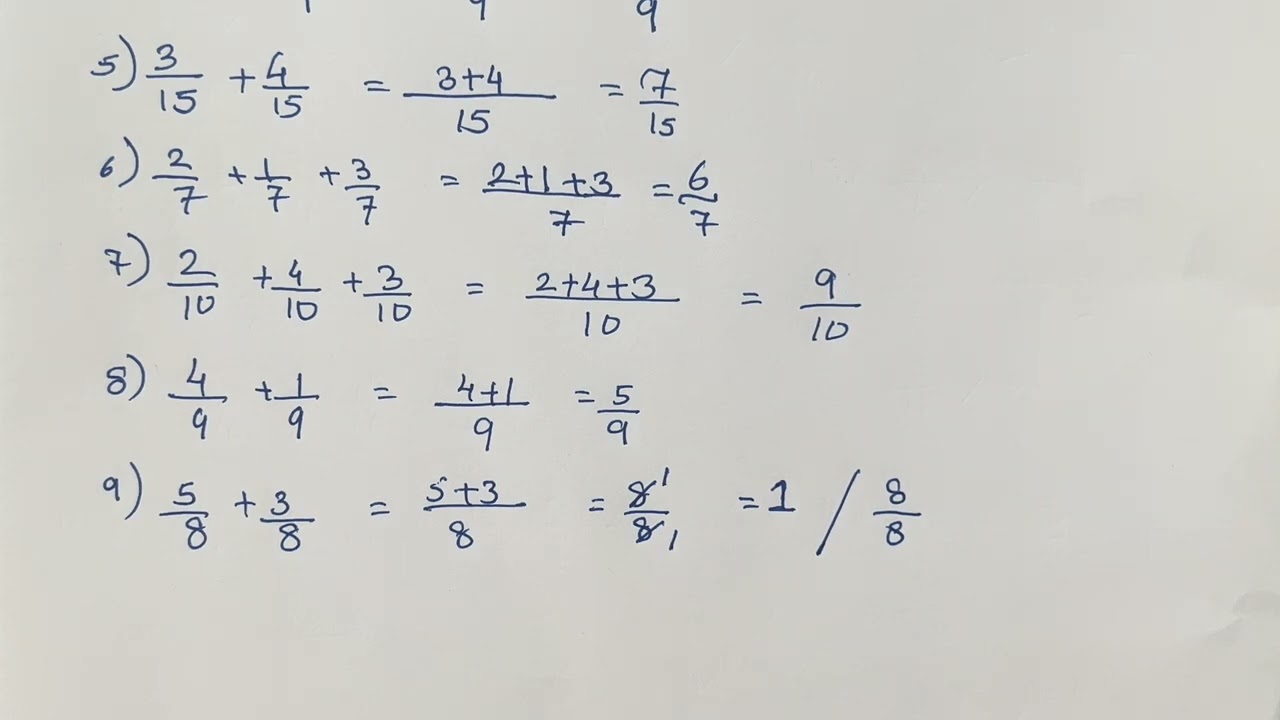 9 9
5) 3/15 + 4/15 = 3+4/15 = 7/15
6) 2/7 + 1/7 + 3/7 = 2+1+3/7 = 6/7
7) 2/10 + 4/10 + 3/10 = 2+4+3/10 = 9/10
8) 4/9 + 1/9 = 4+1/9 = 5/9
9) 5/8 + 3/8 = 5+3/8 = 8¹/8₁ = 1 / 8/8